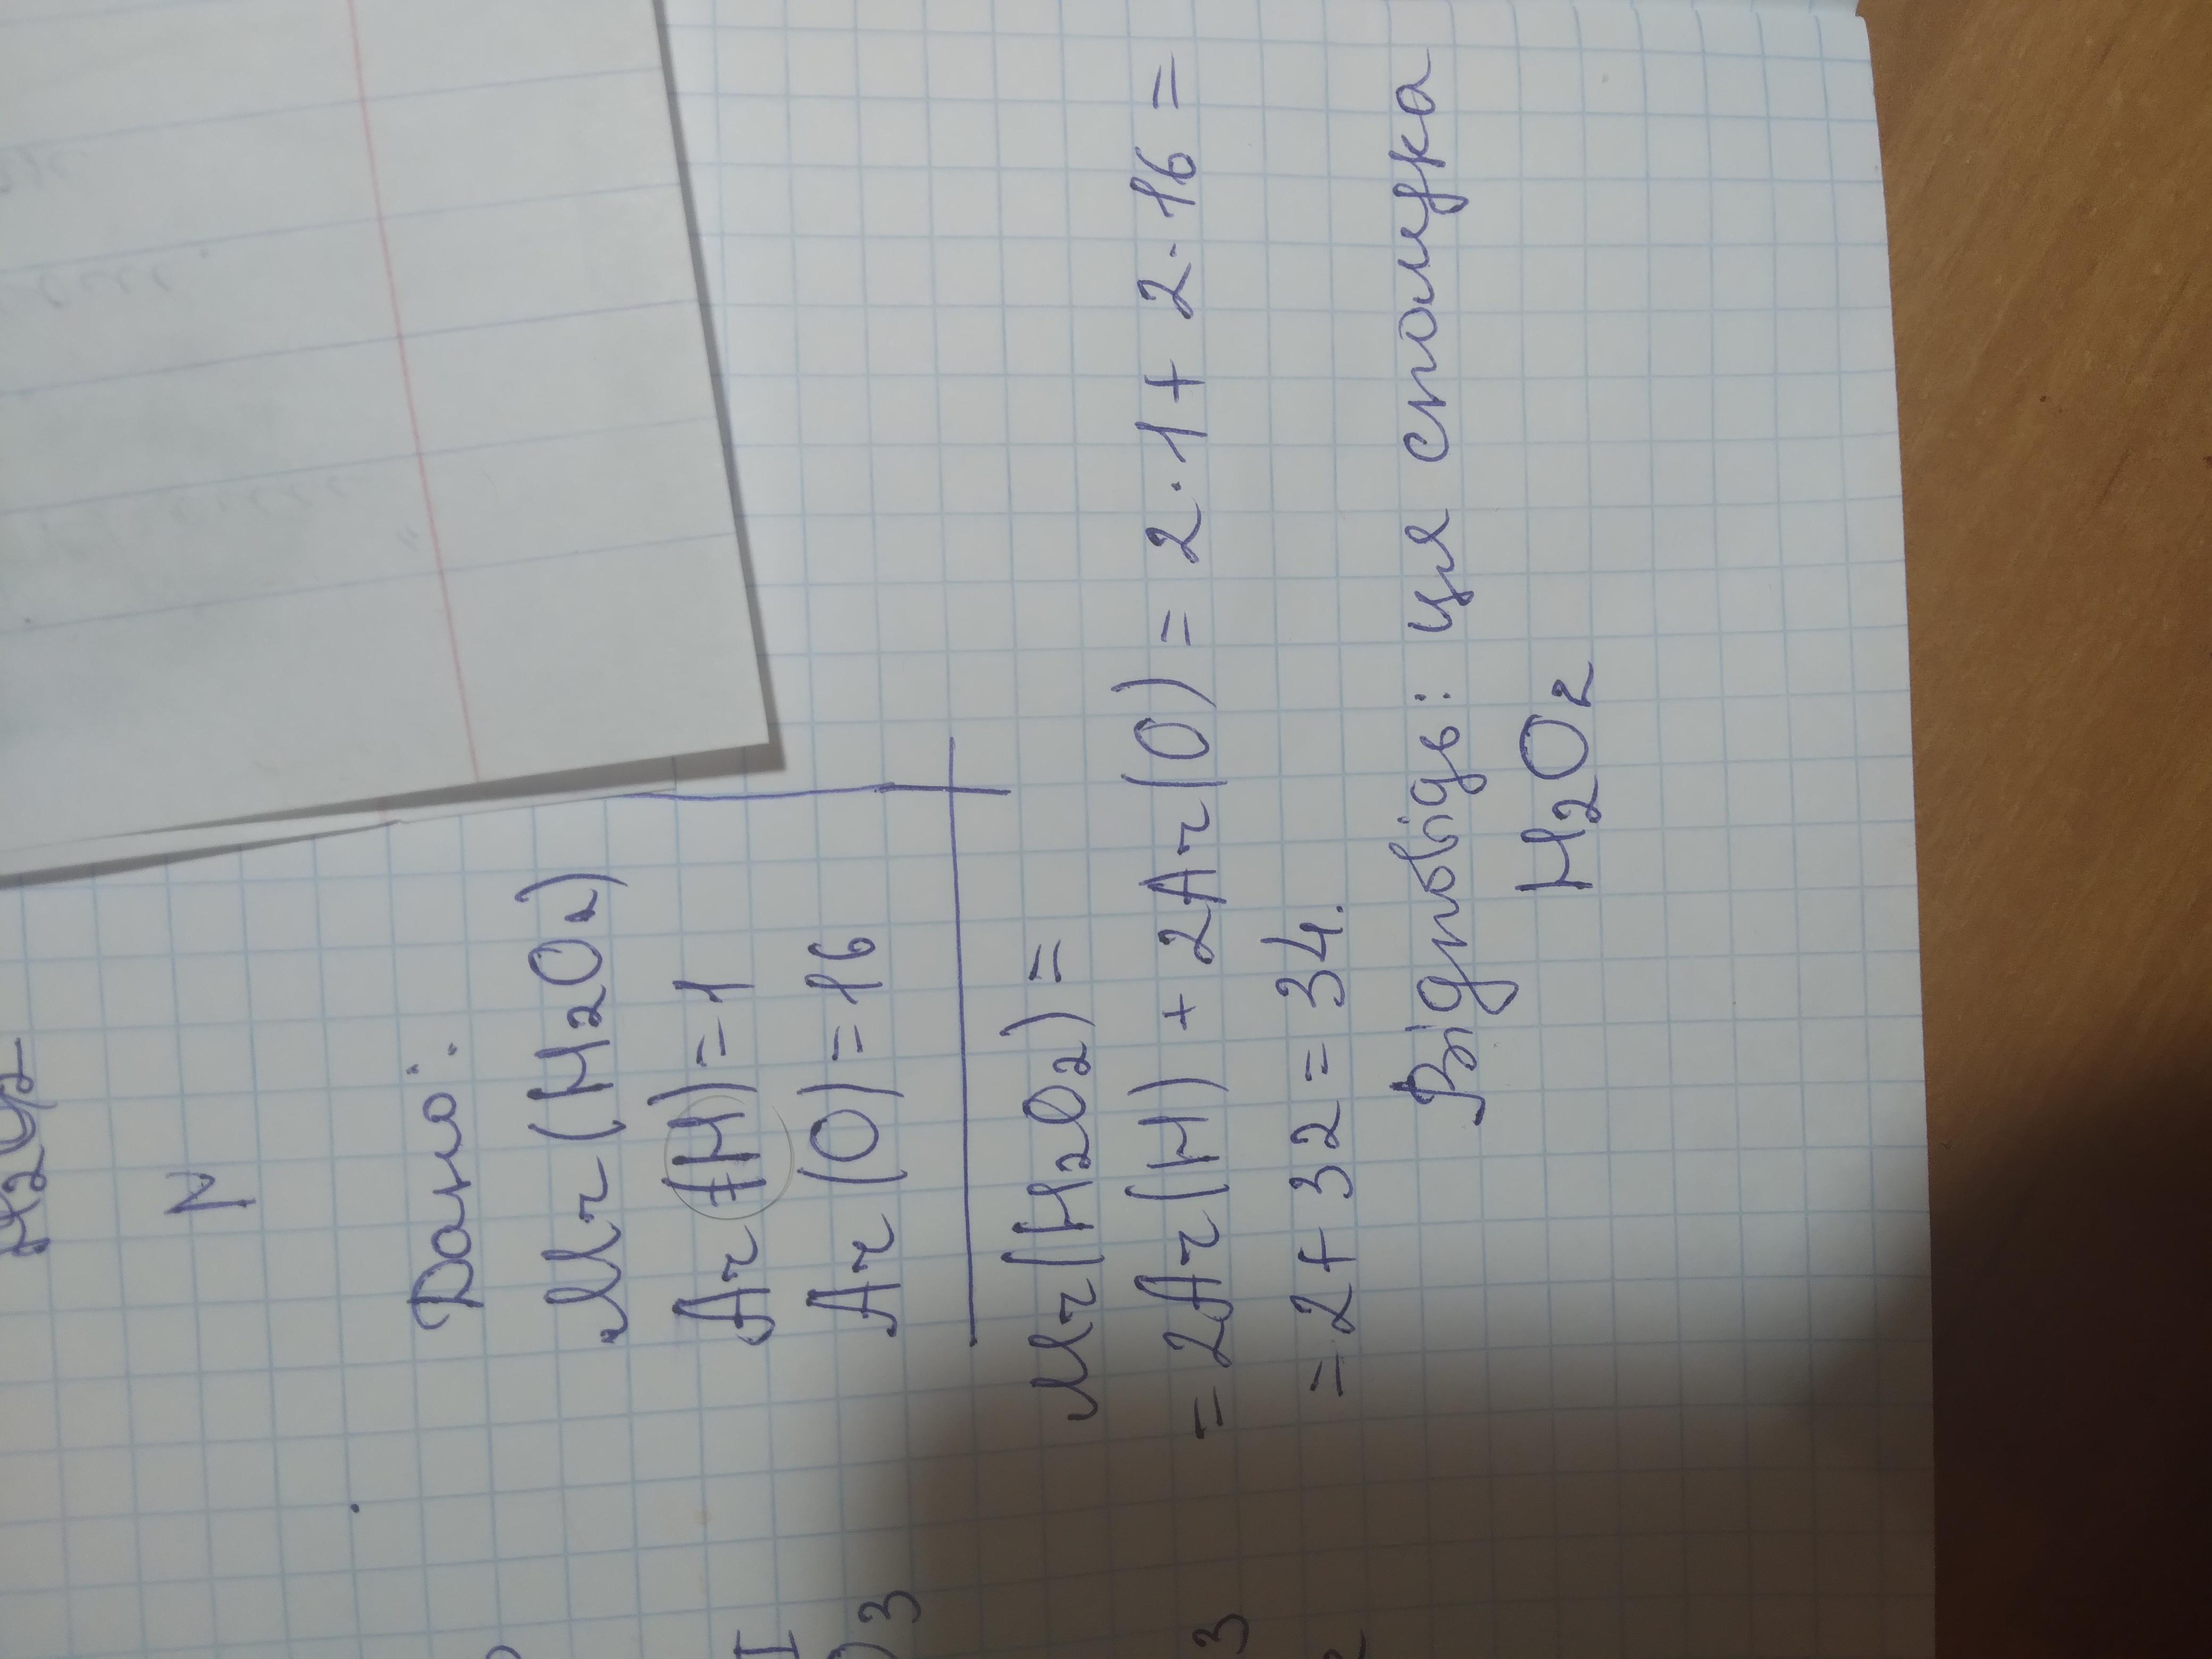 N
Дано:
Mr(H₂O₂)
Ar(H)=1
Ar(O)=16
Mr(H₂O₂)=
=2Ar(H)+2Ar(O)=2·1+2·16=
=2+32=34.
Відповідь: ця сполука
H₂O₂